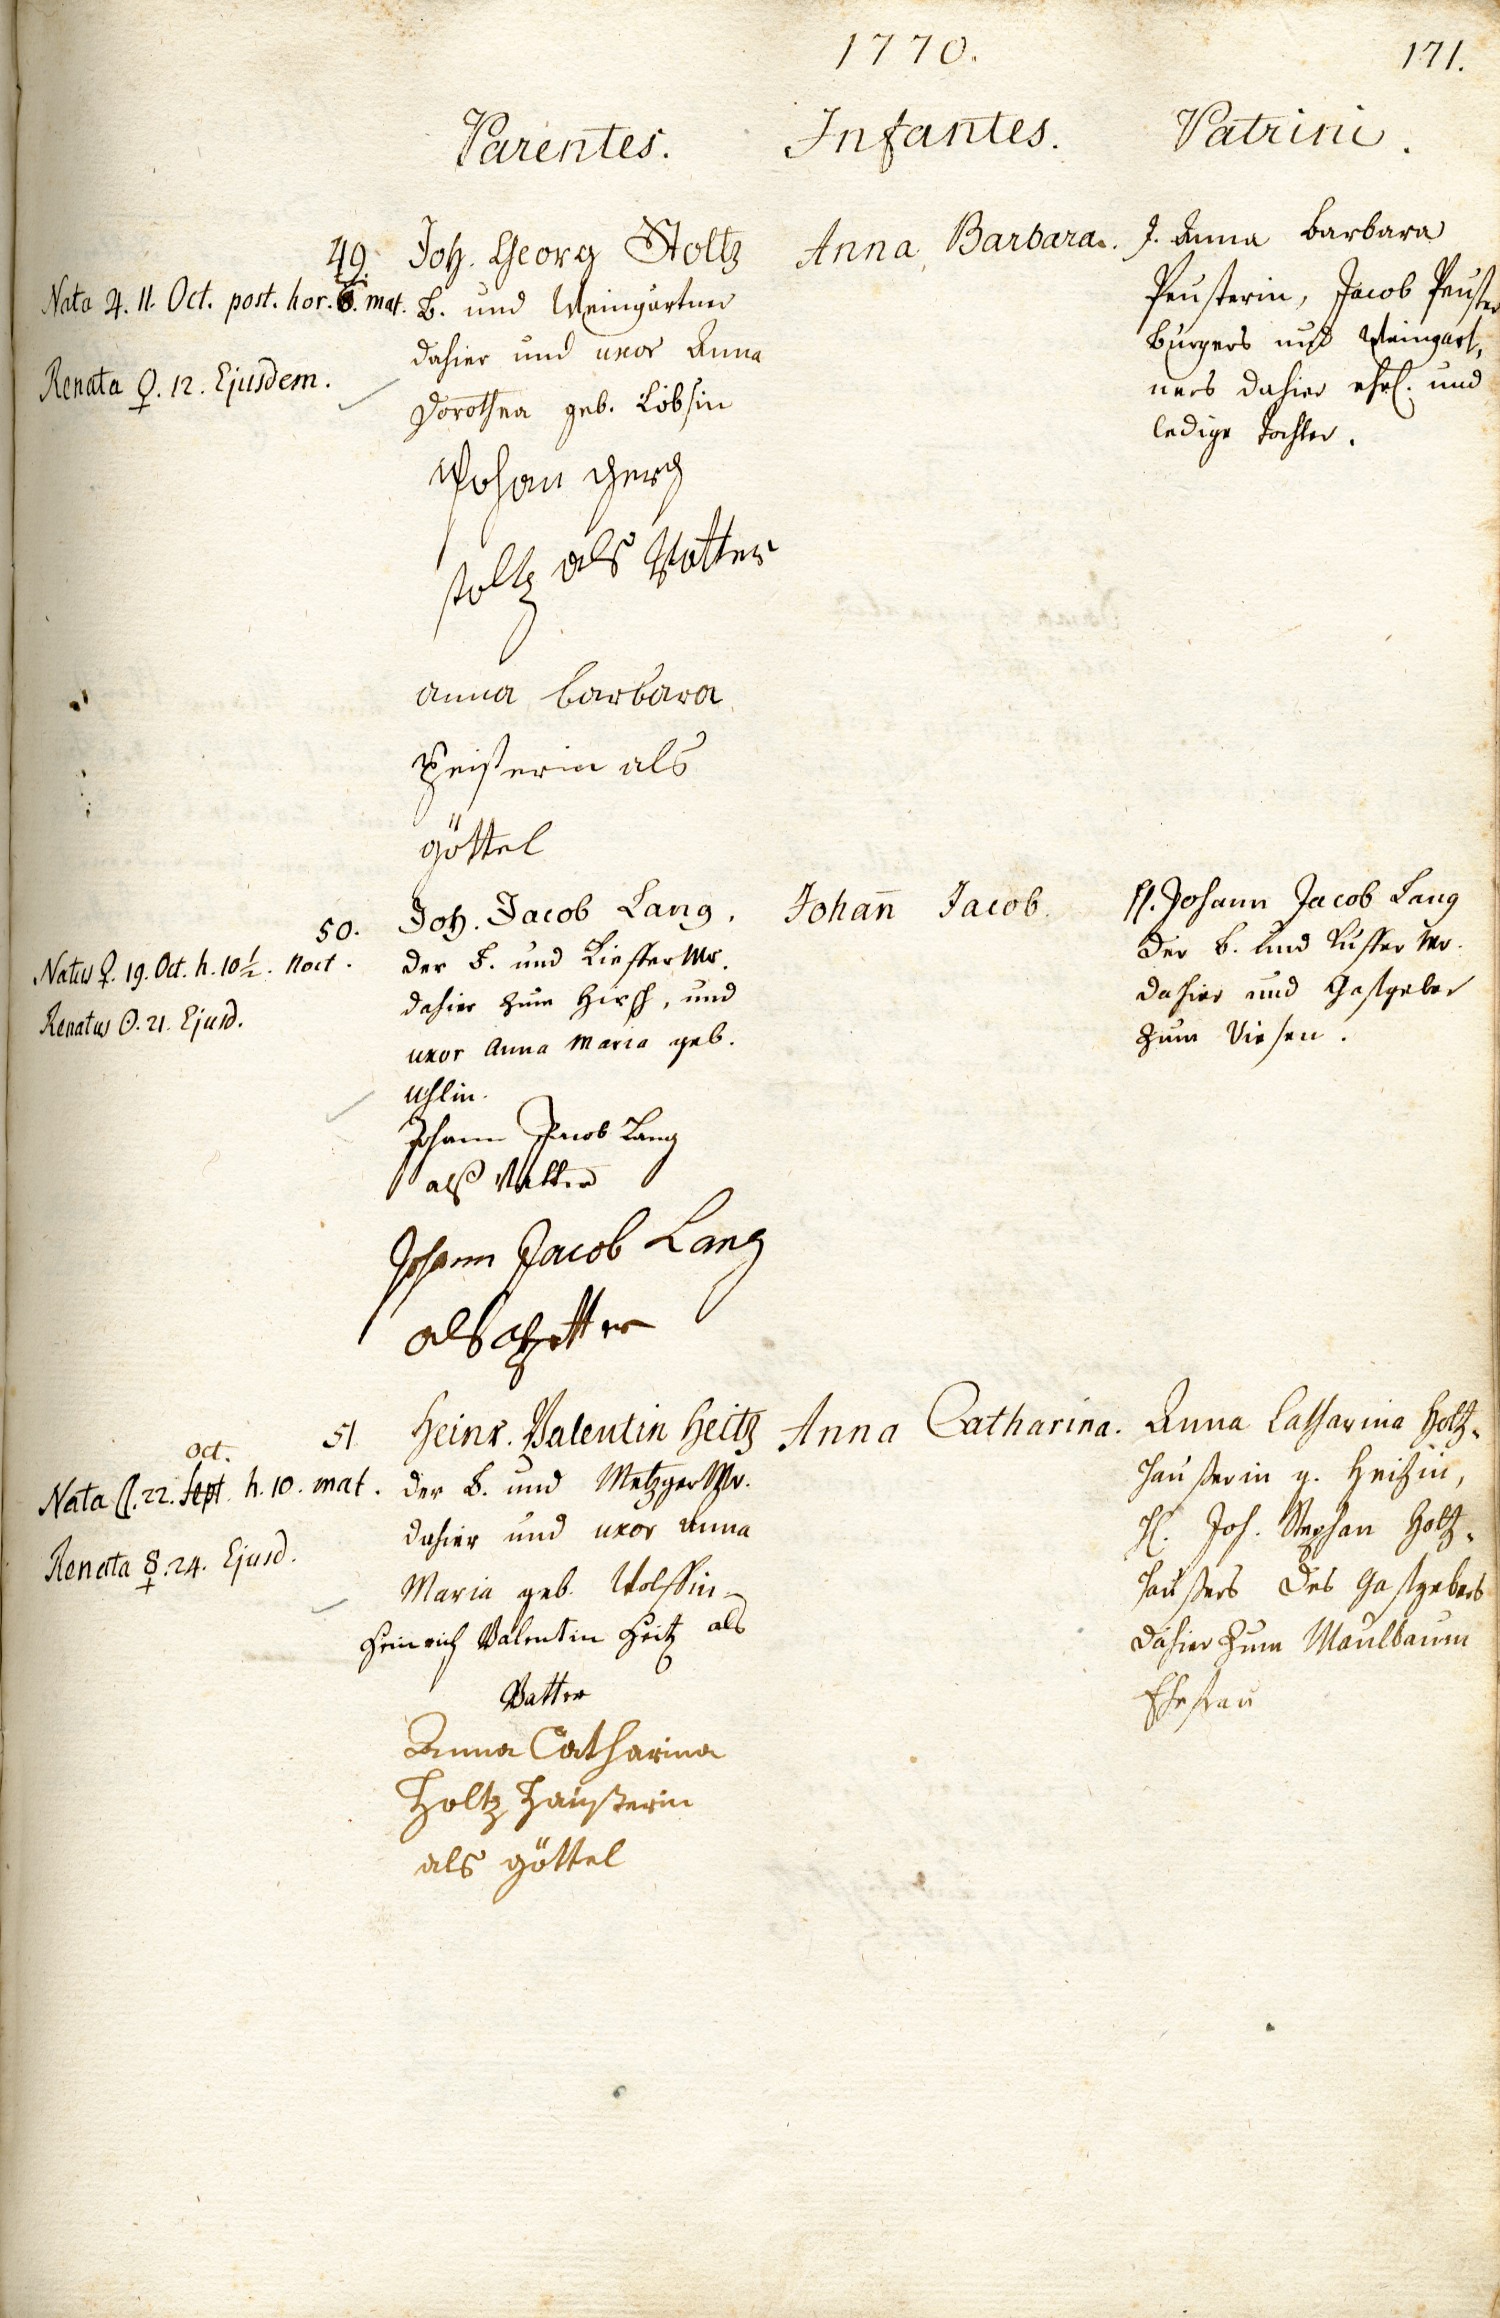 1770.
171.
Parentes.
Infantes.
Patrini.
49.
Nata ♃. 11. Oct. post. hor. 6. mat.
Renata ♀. 12. Ejusdem.
Joh. Georg Stoltz
B. und Weingärtner
dahier und uxor Anna
Dorothea geb. Löbsin
Johan Gerg
stoltz als Vatter
anna barbara
Peisterin als
göttel
Anna Barbara.
J. Anna Barbara
Peusterin, Jacob Peuster
burgers und Weingart,
ners dahier ehel. und
ledige Tochter.
50.
Natus ♀. 19. Oct. h. 10½. noct.
Renatus ☉. 21. Ejusd.
Joh. Jacob Lang.
der B. und Kieffer Mr.
dahier zum Hirsch, und
uxor Anna Maria geb.
Uhlin.
Johann Jacob Lang
alß Vatter
Johann Jacob Lang
als Pfetter
Johan̄ Jacob.
H. Johann Jacob Lang
der B. und Küffer Mr.
dahier und Gastgeber
zum Riesen.
51
Oct.
Nata ☾. 22. Sept. h. 10. mat.
Renata ☿. 24. Ejusd.
Heinr. Valentin Heitz
der B. und Metzger Mr.
dahier und uxor Anna
Maria geb. Wolffin
Heinrich Valentin Heitz als
Vatter
Anna Catharina
Holtz Haußerin
als göttel
Anna Catharina.
Anna Catharina Holtz-
haußerin g. Heitzin,
H. Joh. Stephan Holtz-
haußers des Gastgebers
dahier zum Maulbaum
Ehefrau